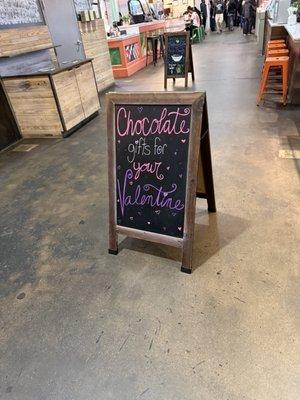 Chocolate
gifts for
your
Valentine